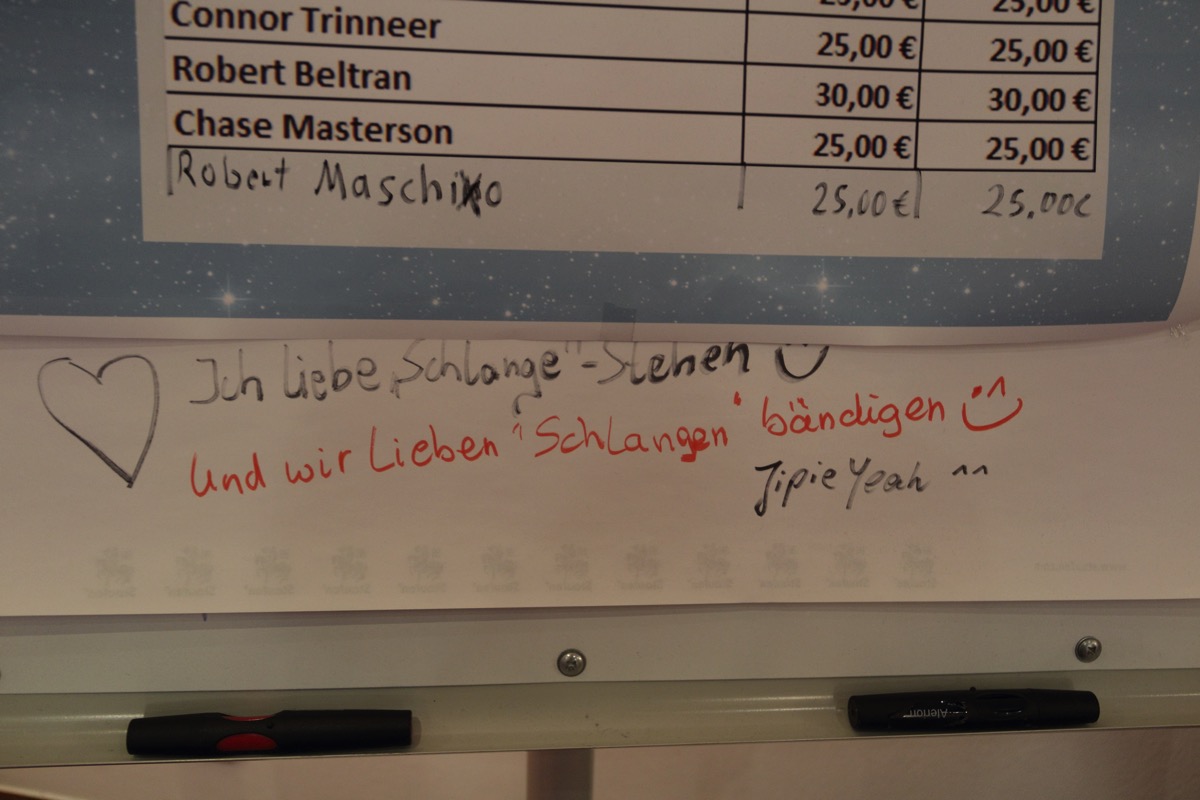 25,00 € 25,00 €
Connor Trinneer 25,00 € 25,00 €
Robert Beltran 30,00 € 30,00 €
Chase Masterson 25,00 € 25,00 €
Robert Maschiko 25,00 € 25,00€
Ich liebe „Schlange"-Stehen
Und wir lieben "Schlangen" bändigen
Jipie Yeah ^^
Alerion